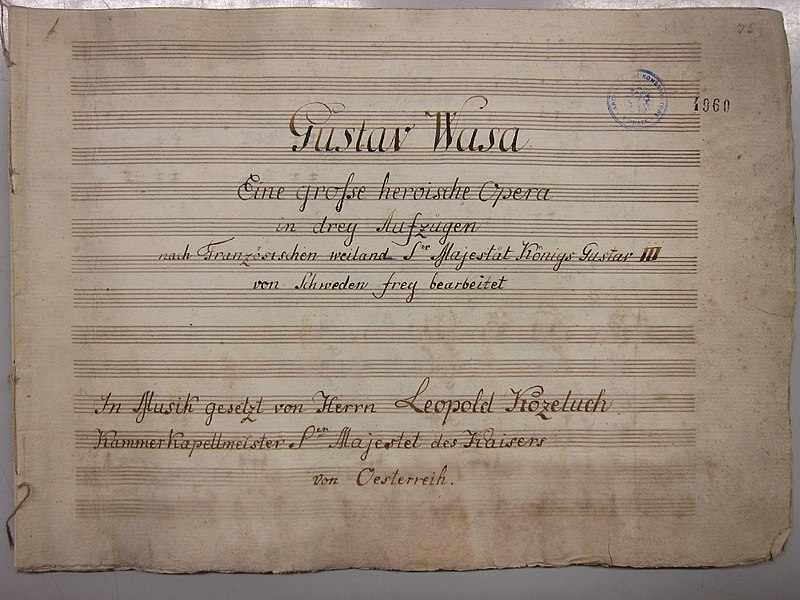 4960
Gustav Wasa
Eine große heroische Opera
in drey Aufzügen
nach Französischen weiland Sr Majestät Königs Gustav III
von Schweden frey bearbeitet
In Musik gesetzt von Herrn Leopold Kozeluch
Kammerkapellmeister Sr Majestet des Kaisers
von Oesterreih.